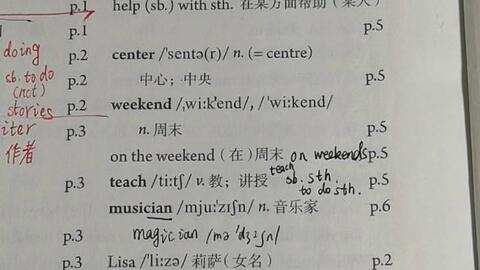 p.1 help (sb.) with sth. 在某方面帮助（某人）
p.1 p.5
doing p.2 center /'sentə(r)/ n. (= centre)
sb. to do p.2 中心；中央 p.5
(not)
stories p.2 weekend /ˌwiːk'end/, /'wiːkend/
iter p.3 n. 周末 p.5
作者 on the weekend（在）周末 on weekends p.5
p.3 teach /tiːtʃ/ v. 教；讲授 teach sb. sth. p.5
to do sth.
musician /mjuː'zɪʃn/ n. 音乐家 p.6
p.3 magician
p.3 Lisa /'liːzə/ 莉萨（女名） p.2